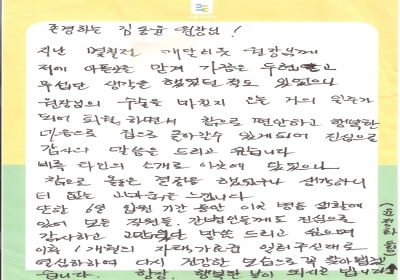 존경하는 김 원장님!
지난 명절전 메달러 원장님께
저에 아픔을 안게 가슴은 두
무섭단 생각을 했었던 적도 있었으나
원장님의 수술을 마친지 오늘 거의 일주가
되어 퇴원하면서 참으로 편안하고 행복한
마음으로 집으로 돌아갈수 있게되어 진심으로
감사의 말씀을 드리고 싶습니다
비록 타인의 소개로 이곳에 왔었으나
참으로 옳은 결정을 했었구나 생각하니
더 없는 고마움을 느낍니다
또한 6일 입원 기간 동안 이곳 병원 생활에
있어 모든 직원들, 간병인들께도 진심으로
감사하고 고맙다는 말씀 드리고 싶으며
이후 1개월의 일러주신대로
열심히하여 다시 건강한 모습으로 꼭 찾아뵙겠
습니다. 항상, 행복한 날이 되시길 빕니다